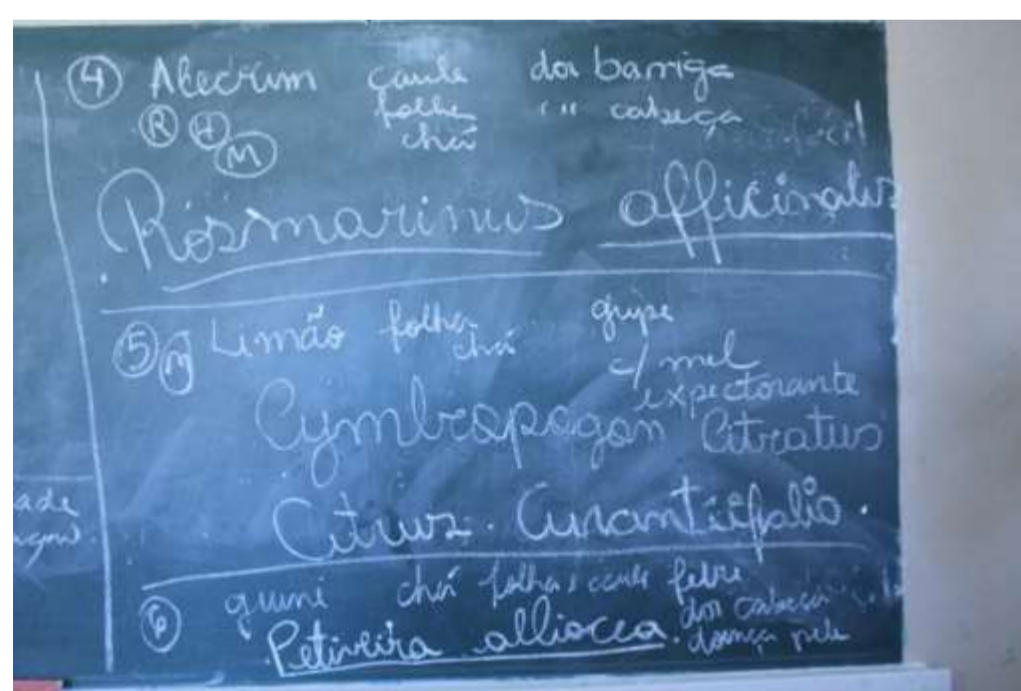 ④ Alecrim caule dor barriga
folha " cabeça
Ⓡ Ⓗ Ⓜ chá
Rosmarinus officinalus
⑤ Ⓜ Limão folha gripe
chá c/ mel
expectorante
Cymbropogon Citratus
Citrus. Aurantiifolio.
⑥ guiné chá folha e caule febre
dor cabeça
Petiveira alliacea. doença pele
ade